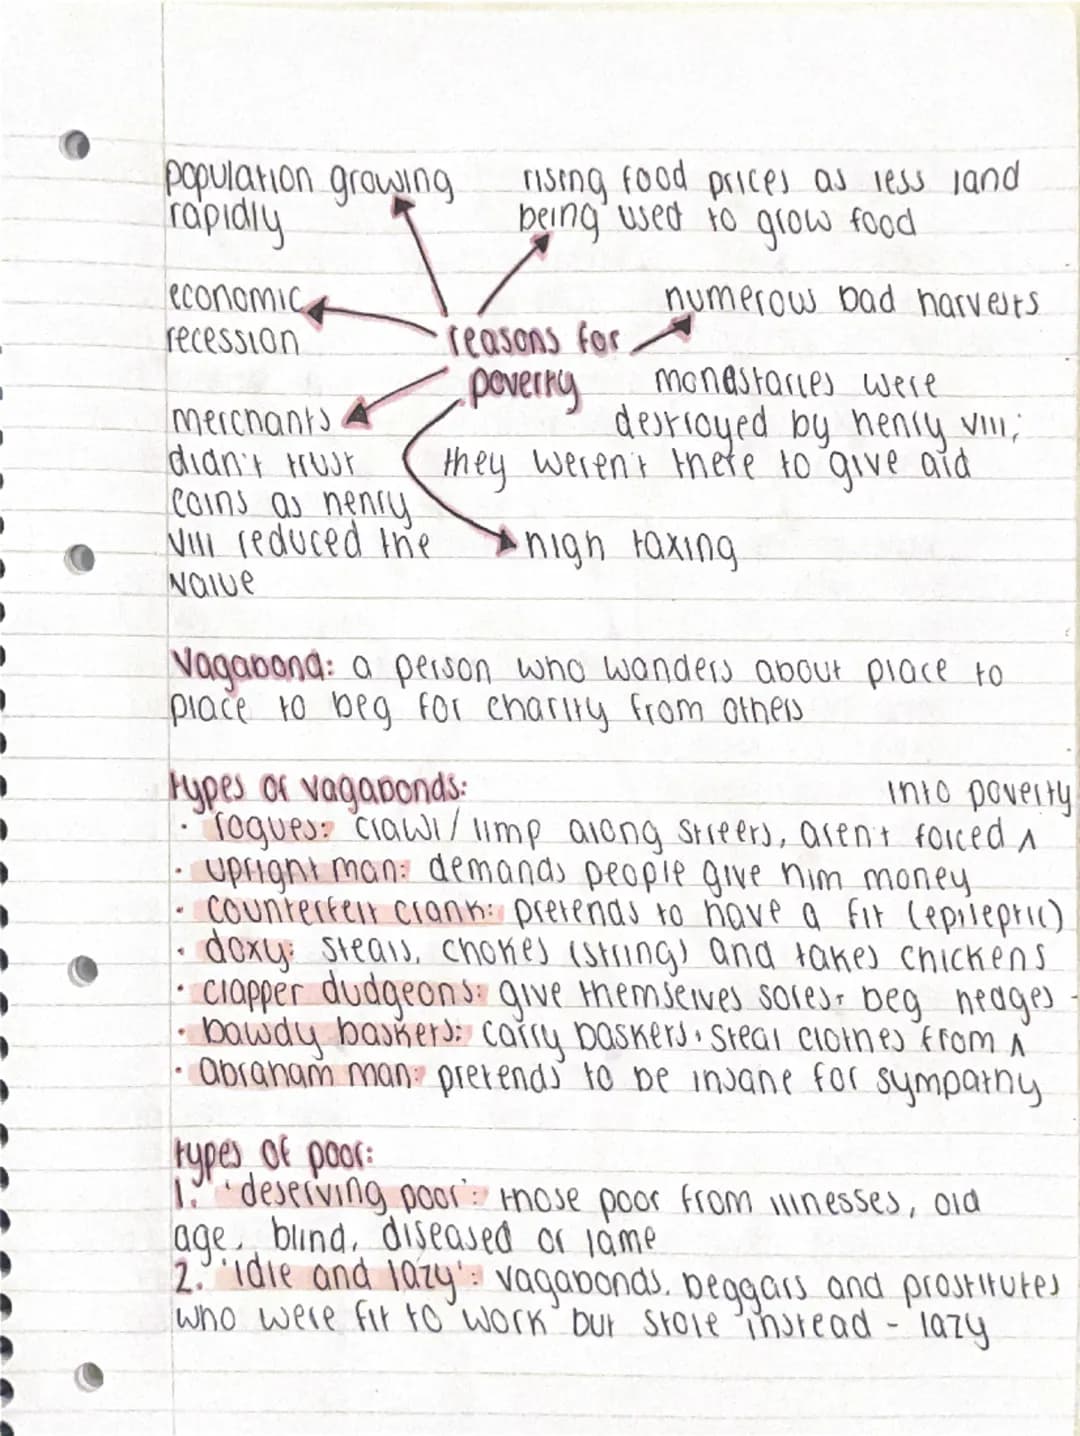 population growing
rapidly
rising food prices as less land
being used to grow food
economic
recession
numerous bad harvests
reasons for
poverty
monastaries were
destroyed by henry VIII;
they weren't there to give aid
merchants
didn't trust
coins as henry
VIII reduced the
value
high taxing
Vagabond: a person who wanders about place to
place to beg for charity from others
types of vagabonds:
into poverty
· rogues: crawl/limp along streets, aren't forced ^
· upright man: demands people give him money
· counterfeit crank: pretends to have a fit (epileptic)
· doxy: steals, chokes (string) and takes chickens
· clapper dudgeons: give themselves sores + beg hedges
· bawdy baskets: carry baskets, steal clothes from ^
· abraham man: pretends to be insane for sympathy
types of poor:
1. 'deserving poor': those poor from illnesses, old
age, blind, diseased or lame
2. 'idle and lazy': vagabonds, beggars and prostitutes
who were fit to work but stole instead - lazy